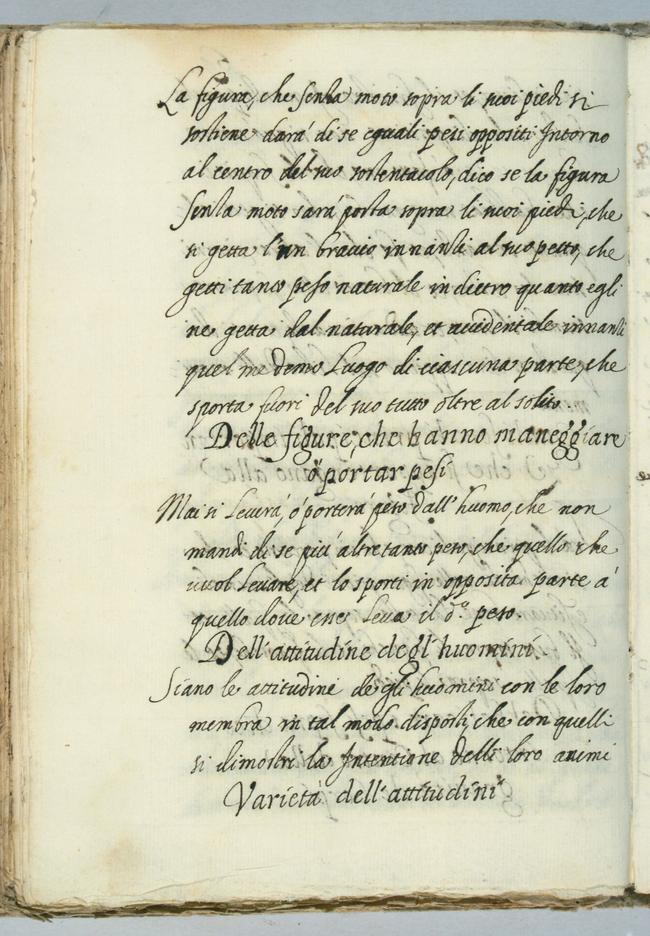 La figura, che senza moto sopra li suoi piedi si
sostiene dará di se eguali pesi oppositi Intorno
al centro del suo sostentacolo, dico se la figura
senza moto sará posta sopra li suoi piedi, che
si getta l'un braccio innanzi al suo petto, che
getti tanto peso naturale in dietro quanto egli
ne getta dal naturale, et accidentale innanzi
quel medemo Luogo di ciascuna parte, che
sporta fuori del suo tutto oltre al solito.
Delle figure, che hanno maneggiare
ó portar pesi
Mai si Leverá, ó porterá peso dall'huomo, che non
mandi di se piú altretanto peso, che quello che
vuol Levare, et lo sporti in opposita parte á
quello dove esso Leva il d.º peso.
Dell'attitudine degl'huomini
Siano le attitudini degli huomini con le loro
membra in tal modo disposti che con quelli
si dimostri la Intentione delli loro animi
Varietá dell'attitudini